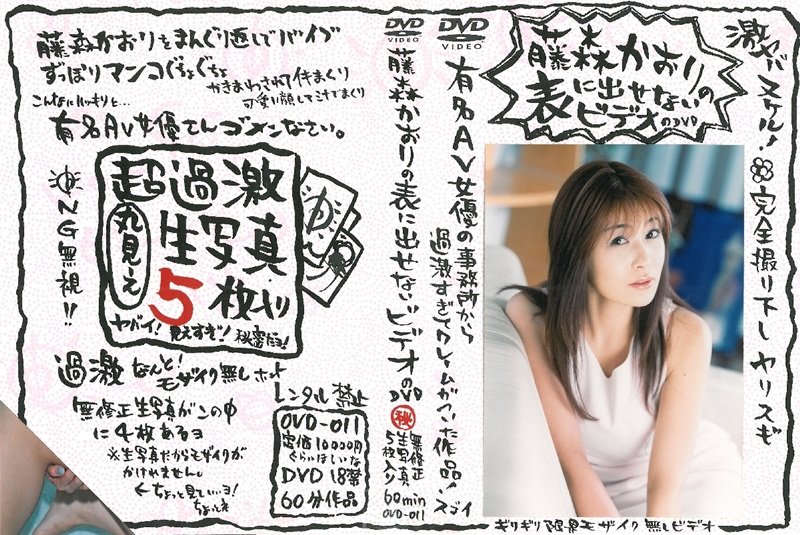 藤森かおりをまんぐり返しでバイブ
ずっぽりマンコぐちょぐちょ
かきまわされてイキまくり
こんなにハッキリと…
有名AV女優さんゴメンなさい。
NG無視!!
超過激
丸見え
生写真
5枚入り
ヤバイ!見えすぎ!秘密だヨ!
過激なんと!モザイク無しホント
無修正生写真がこの中
に4枚あるヨ
※生写真だからモザイクが
かけれません。
←ちょっと見ていいヨ!
レンタル禁止
OVD-011
定価10000円
ぐらいはいいな
DVD 18禁
60分作品
DVD
VIDEO
藤森かおりの表に出せないビデオのDVD
秘
無修正
生写真
5枚入り
60min
OVD-011
DVD
VIDEO
有名AV女優の事務所から
過激すぎてクレームがついた作品!スゴイ
藤森かおりの
表に出せない
ビデオのDVD
激ヤバスケル!
完全撮り下しヤリスギ
ギリギリ限界モザイク無しビデオ